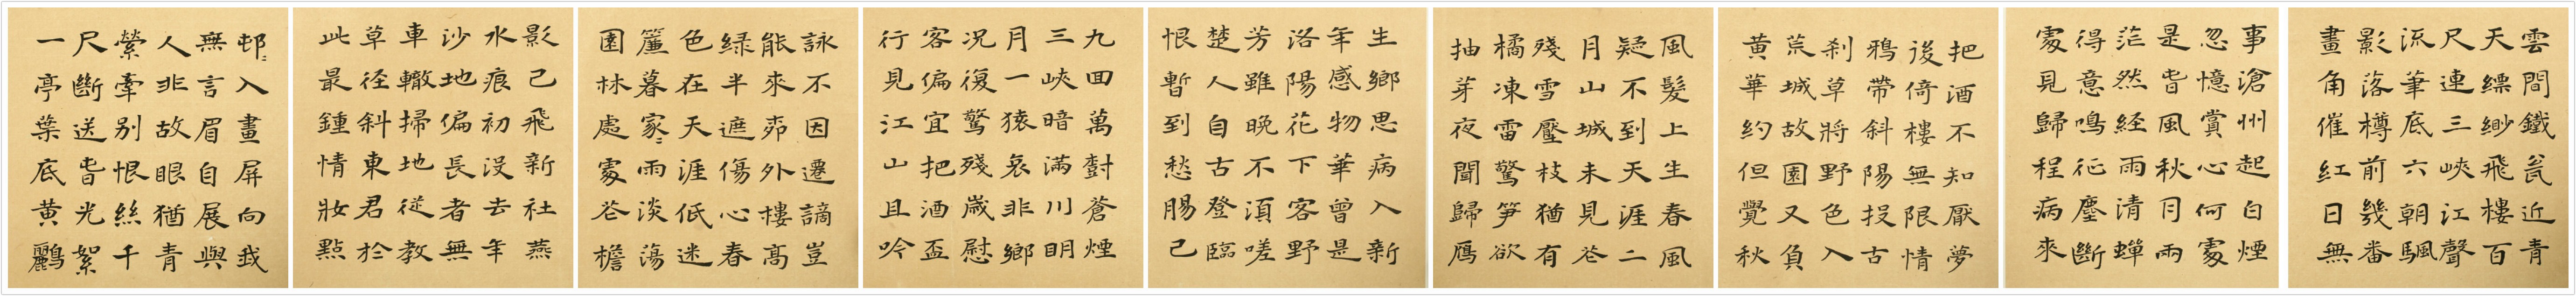 雲間鐵瓮近青
天縹緲飛樓百
尺連三峽江聲
流筆底六朝颿
影落樽前幾番
畫角催紅日無
事滄州起白煙
忽憶賞心何處
是旾風秋月兩
茫然経雨清蟬
得意鳴征塵斷
處見歸程病來
把酒不知厭夢
後倚樓無限情
鴉帶斜陽投古
刹草將野色入
荒城故園又負
黄華約但覺秋
風髮上生春風
疑不到天涯二
月山城未見花
殘雪壓枝猶有
橘凍雷驚笋欲
抽芽夜聞歸鴈
生鄉思病入新
年感物華曾是
洛陽花下客野
芳雖晚不須嗟
楚人自古登臨
恨暫到愁腸已
九回萬樹蒼煙
三峽暗滿川明
月一猿哀非鄉
況復驚殘歲慰
客偏宜把酒盃
行見江山且吟
詠不因遷謫豈
能來茆外樓高
綠半遮傷心春
色在天涯低迷
簾幕家〻雨淡蕩
園林處處花檐
影已飛新社燕
水痕初沒去年
沙地偏長者無
車轍掃地從教
草徑斜東君於
此最鍾情妝點
邨〻入畫屏向我
無言眉自展與
人非故眼猶青
縈牽別恨絲千
尺斷送旾光絮
一亭葉底黃鸝